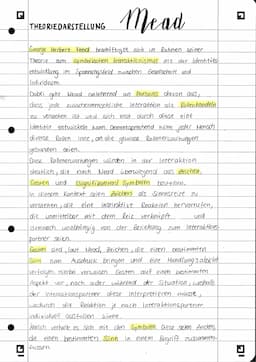 THEORIEDARSTELLUNG Mead
George Herbert Mead beschäftigt sich im Rahmen seiner
Theorie zum symbolischen Interaktionismus mit der Identitäts-
entwicklung im Spannungsfeld zwischen Gesellschaft und
Individuum.
Dabei geht Mead anlehnend an Parsons davon aus,
dass jede zwischenmenschliche Interaktion als Rollenhandeln
zu verstehen ist und sich erst durch diese eine
Identität entwickeln kann. Dementsprechend nimmt jeder Mensch
diverse Rollen inne, an die gewisse Rollenerwartungen
gebunden seien.
Diese Rollenerwartungen würden in der Interaktion
deutlich, die nach Mead überwiegend aus Zeichen,
Gesten und signifikanten Symbolen bestehe.
In diesem Kontext seien Zeichen als Sinnesreize zu
verstehen, die eine instinktive Reaktion hervorrufen,
die unmittelbar mit dem Reiz verknüpft und
dennoch unabhängig von der Beziehung zum Interaktions-
partner seien.
Gesten sind, laut Mead, Zeichen, die einen bestimmten
Sinn zum Ausdruck bringen und eine Handlungsabsicht
verfolgen. Hierbei verweisen Gesten auf einen bestimmten
Aspekt vor, nach oder während der Situation, weshalb
der Interaktionspartner diese interpretieren müsse,
wodurch die Reaktion je nach Interaktionspartner
individuell ausfallen könne.
Ähnlich verhalte es sich mit den Symbolen. Dies seien Zeichen,
die einen bestimmten Sinn in einem Begriff zusammen-
fassen.